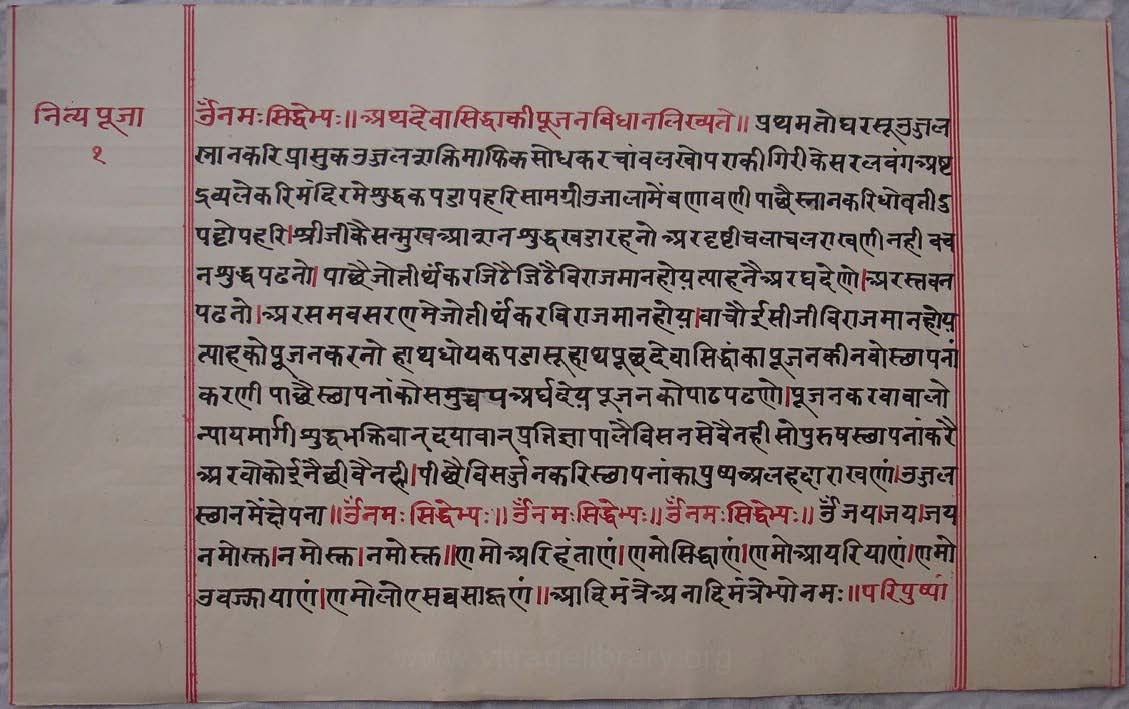 नित्य पूजा
१
ॐ नमः सिद्धेभ्यः ॥ अथ देवा सिद्धा की पूजन विधान लिख्यते ॥ प्रथम तो घर सू उजल
स्नान करि प्रासुक उजल शक्ति माफिक सोध कर चांवल खोपरा की गिरी केसर लवंग अष्ट
द्रव्य लेकरि मंदिर मे शुद्ध कपडा पहरि सामग्री उजाला में बणावणी पाछै स्नान करि धोवती दु
पट्टो पहरि । श्रीजी कै सन्मुख आशन शुद्ध खडा रहनो अर दृष्टी चलाचल राखणी नही वच
न शुद्ध पढनो । पाछै जो तीर्थंकर जिठै जिठै विराजमान होय त्याह नै अरघ देणो । अर स्तवन
पढनो । अर समवसरण मे जो तीर्थंकर विराजमान होय । वा चौईसी जी विराजमान होय
त्याह को पूजन करनो हाथ धोय कपडा सू हाथ पूछ देवा सिद्धां का पूजन की नवो स्छापनां
करणी पाछै स्छापनां को समुच्चय अर्घ देय पूजन को पाठ पढणो । पूजन करवा वालो
न्याय मार्गी शुद्ध भक्तिवान् दयावान् प्रतिज्ञा पालै विसन सेवै नही सो पुरुष स्छापनां करै
अर वो कोई नै छीवै नही । पीछै विसर्जन करि स्छापनां का पुष्प अलहदा राखणां । उजल
स्छान में क्षेपना ॥ ॐ नमः सिद्धेभ्यः ॥ ॐ नमः सिद्धेभ्यः ॥ ॐ नमः सिद्धेभ्यः ॥ ॐ जय । जय । जय
नमोस्तु । नमोस्तु । नमोस्तु ॥ णमो अरिहंताणं । णमो सिद्धाणं । णमो आयरियाणं । णमो
उवज्झायाणं । णमो लोए सव्व साहूणं ॥ आदि मंत्रै अनादि मंत्रेभ्यो नमः ॥ परिपुष्पां
www.vitragelibrary.org